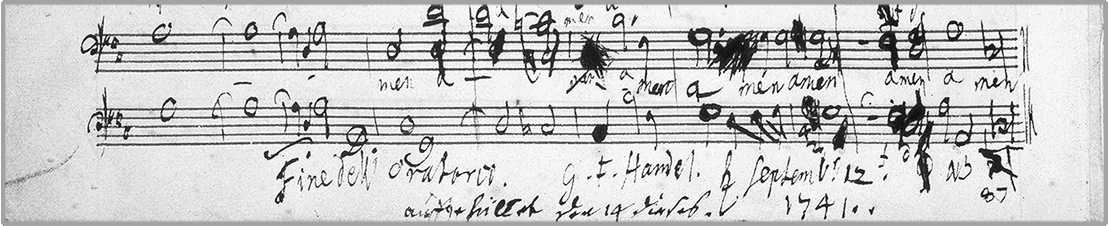 men
men a a men a men amen amen a men
Fine dell Oratorio. G. F. Handel. ♄ Septembr 12.
ausgefüllet den 14 dieses. 1741..